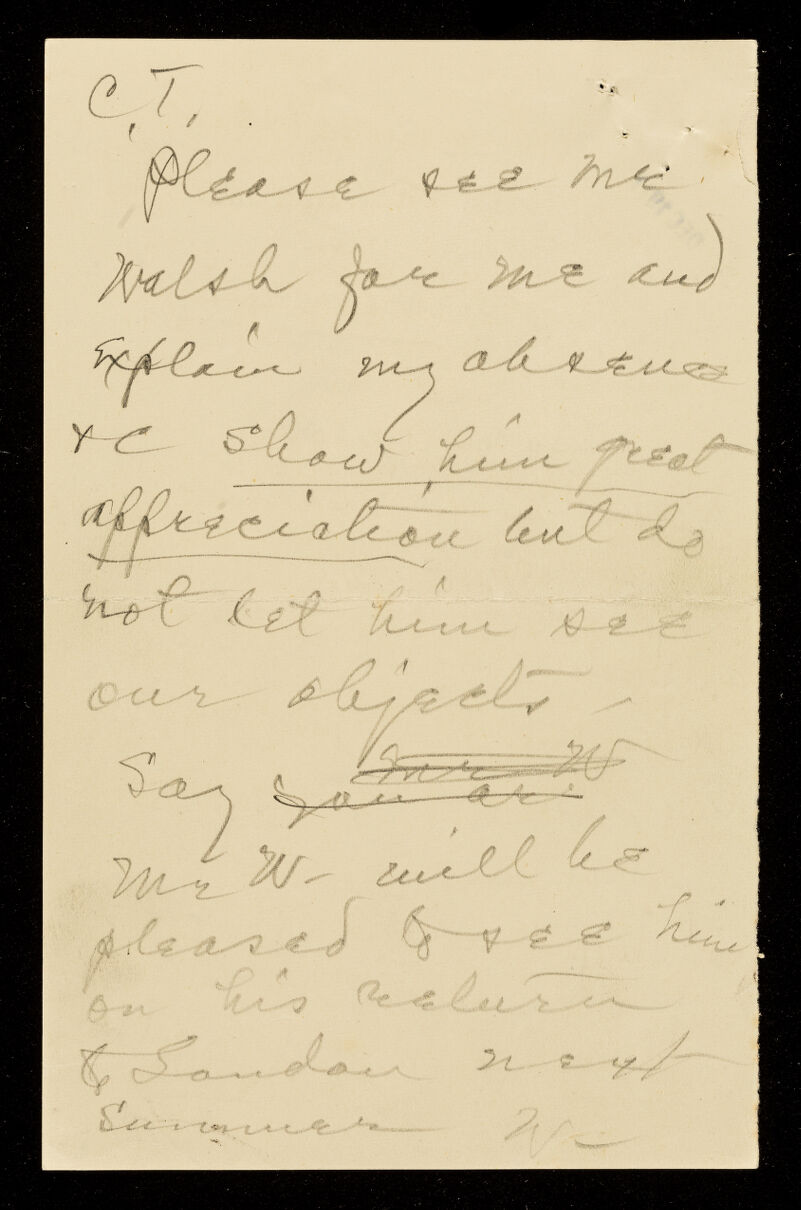 C.T.
Please see Mr
Walsh for me and
Explain my absence
&c Show him great
appreciation but do
not let him see
our objects –
Mr W
Say you are
Mr W– will be
pleased to see him
on his return
to London next
Summer W–